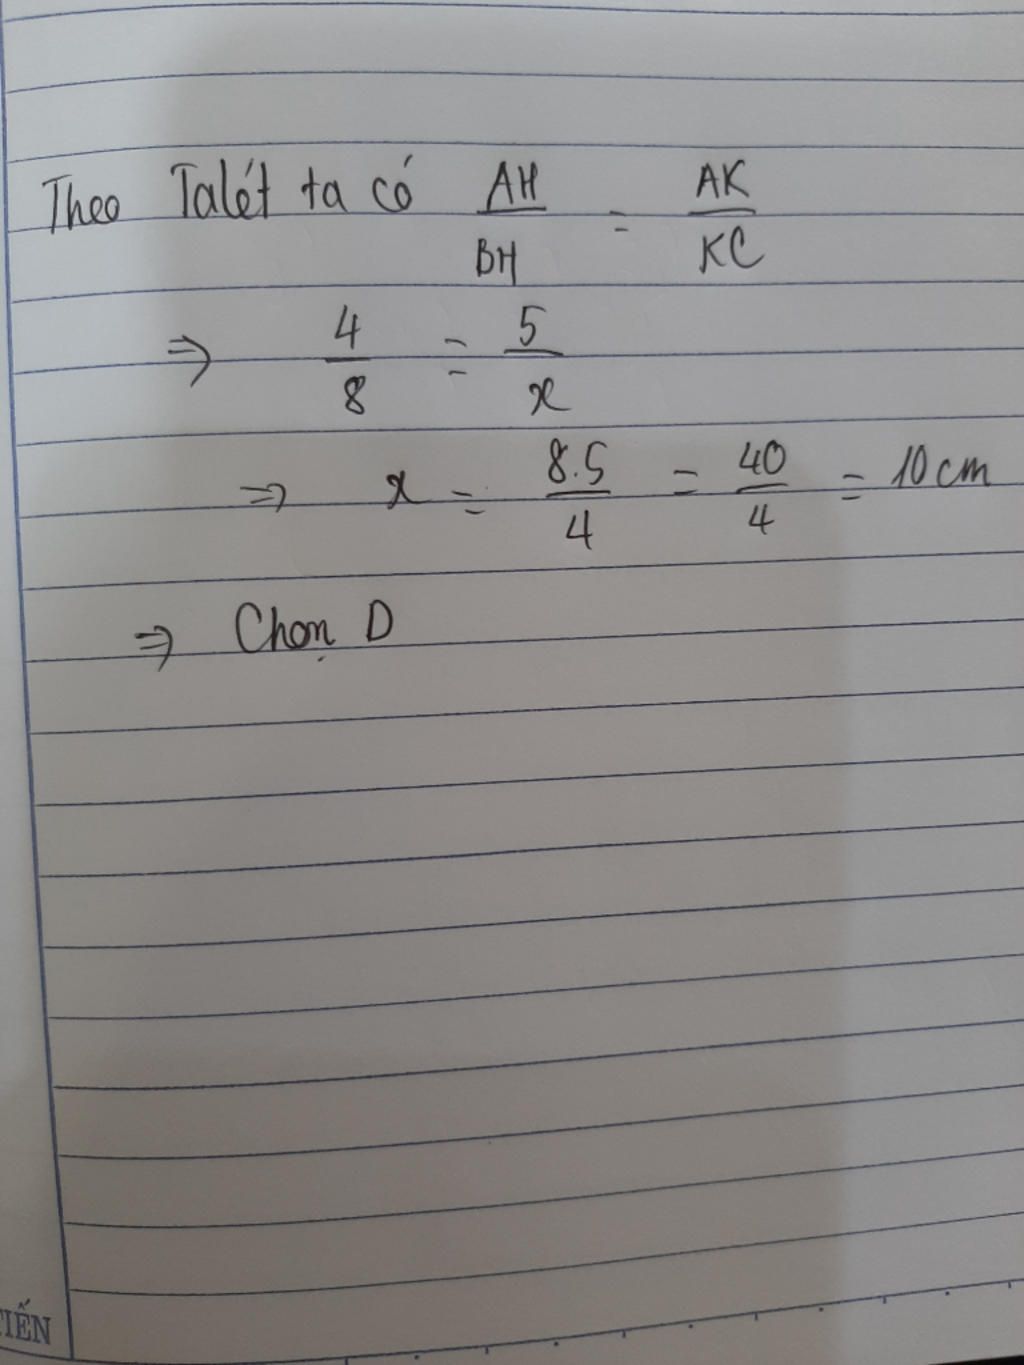 Theo Talét ta có AH/BH = AK/KC
⇒ 4/8 = 5/x
⇒ x = 8.5/4 = 40/4 = 10cm
⇒ Chọn D
TIẾN